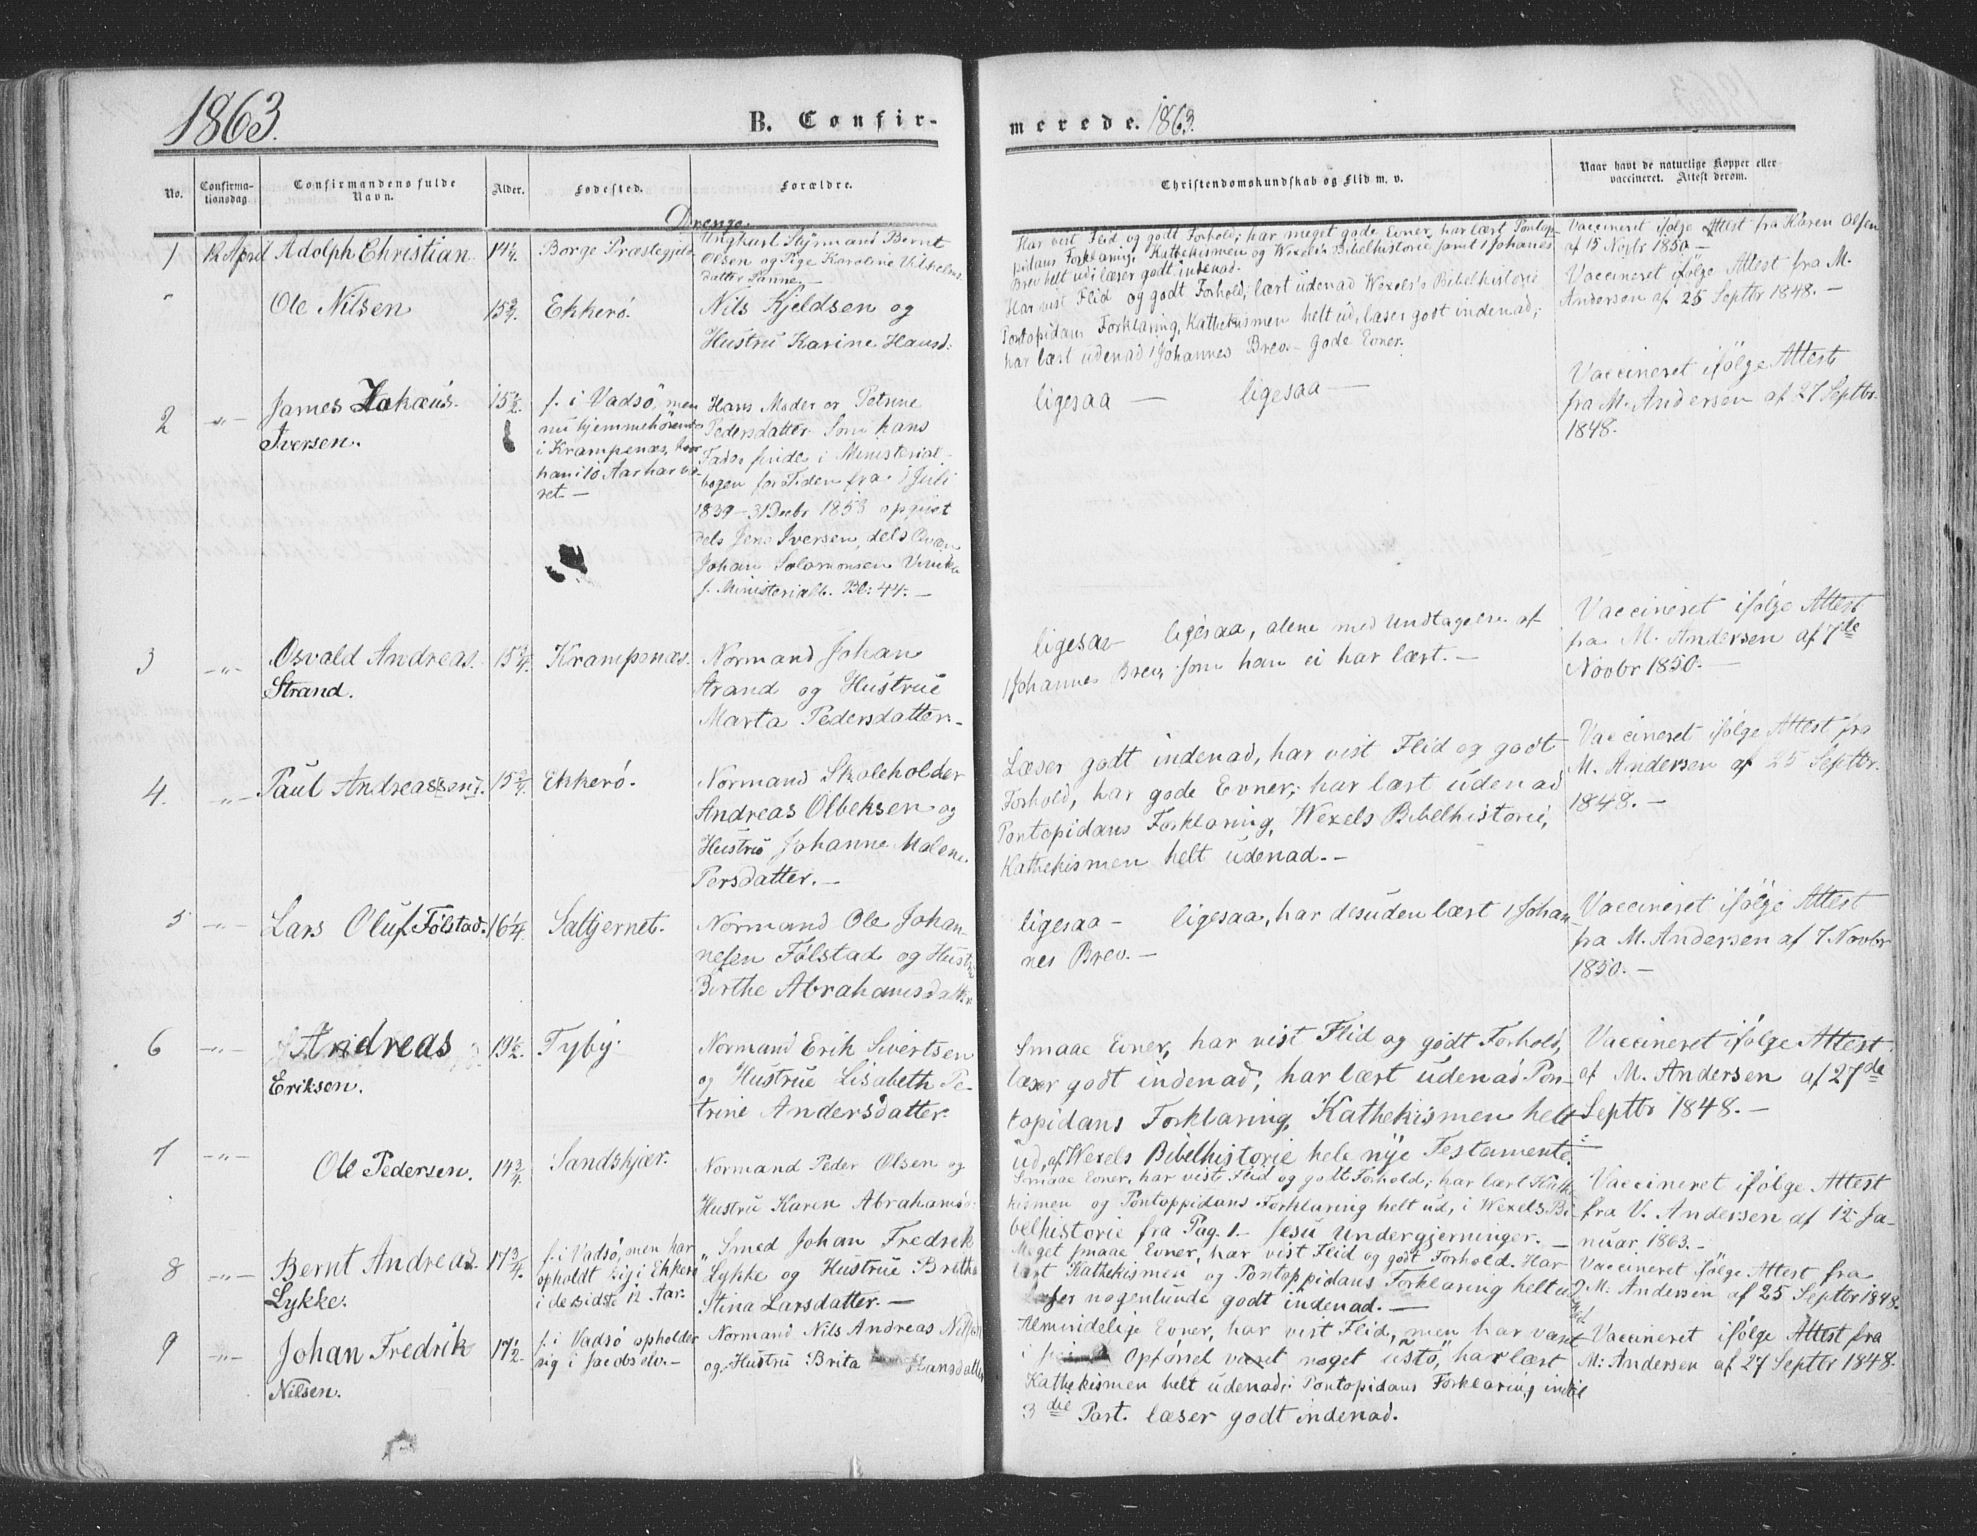 1863.
B. Confir-
merede. 1863.
No.
Confirma-
tionsdag
Confirmandens fulde
Navn.
Alder.
Fødested.
Forældre.
Christendomskundskab og Flid m. v.
Naar havt de naturlige Kopper eller
vaccineret. Attest derom.
Drenge.
1
12 April
Adolph Christian
14 1/4
Borge Præstegjeld
Ungkarl Styrmand Bernt
Olsen og Pige Karoline Vilhelms
datter
Har vist Flid og godt Forhold; har meget gode Evner, har læst Pontop-
pidans Forklaring, Kathekismen og Wexels Bibelhistorie samt 1 Johannes
Brev helt ud; læser godt indenad.
Vaccineret ifølge Attest fra Karen Olsen
af 15 Novbr 1850 —
"
Ole Nilsen
15 3/4
Ekkerö.
Nils Kjeldsen og
Hustru Karine Hansd:
Har vist Flid og godt Forhold, lært udenad Wexels's Bibelhistorie
Pontopidans Forklaring, Kathekismen helt ud, læser godt indenad;
har læst udenad 1 Johannes Brev. — gode Evner.
Vaccineret ifølge Attest fra M.
Andersen af 25 Septbr 1848. —
2
—"—
James
Iversen.
15 1/2
f. i Vadsö, men
nu hjemmehörende
i Krampenæs, hvor
han i 10 Aar har væ-
ret —
Hans Moder er Petrine
Pedersdatter. Som hans
Fader findes i Ministerial-
bogen for Tiden fra 1 Juli
1839 — 31 Decbr 1853 opgivet
dels Jens Iversen, dels Qvæn
Johan Salomonsen
f. Ministerialb. Bl: 44. —
ligesaa — ligesaa —
Vaccineret ifölge Attest
fra M. Andersen af 27 Septbr.
1848.
3
—"—
Osvald Andreas
Strand.
15 3/4
Krampenæs.
Normand Johan
Strand og Hustrue
Marta Pedersdatter. —
ligesaa — ligesaa, alene med Undtagelse af
1 Johannes Brev, som han ei har lært. —
Vaccineret ifølge Attest
fra M. Andersen af 7de
Novbr 1850. —
4.
—"—
Paul Andreas[sen].
15 3/4
Ekkerö.
Normand Skoleholder
Andreas Olbeksen og
Hustru Johanne Malene
Persdatter. —
Læser godt indenad, har vist Flid og godt
Forhold, har gode Evner; har læst udenad
Pontopidans Forklaring, Wexels Bibelhistorie,
Kathekismen helt udenad. —
Vaccineret ifølge Attest fra
M. Andersen af 25 Septbr.
1848. —
5
—"—
Lars Oluf Følstad.
16 1/4
Saltjernet.
Normand Ole Johan-
nesen Følstad og Hustru
Birthe Abrahamsdatter
ligesaa — ligesaa, har desuden lært 1 Johan-
nes Brev. —
Vaccineret ifölge Attest
fra M. Andersen af 7 Novbr
1850. —
6
—"—
Andreas
Eriksen.
19 1/2
Tyby.
Normand Erik Sivertsen
og Hustrue Lisabeth Pe-
trine Andersdatter.
Smaae Evner, har vist Flid og godt Forhold,
læser godt indenad; har lært udenad Pon-
topidans Forklaring, Kathekismen helt
ud, af Wexels Bibelhistorie hele nye Testamente.
Vaccineret ifølge Attest
af M. Andersen af 27de
Septbr 1848. —
7
—"—
Ole Pedersen.
14 3/4
Sandskjær.
Normand Peder Olsen og
Hustru Karen Abrahamsd:
Smaae Evner, har vist Flid og godt Forhold; har lært Kathe-
kismen og Pontoppidans Forklaring helt ud, i Wexels Bi-
belhistorie fra Pag. 1 — Jesu Undergjerninger. —
Vaccineret ifølge Attest
fra V. Andersen af 12 Ja-
nuar 1863. —
8
—"—
Bernt Andreas
Lykke.
17 3/4
f. i Vadsö, men har
opholdt sig i Ekkerö
i de sidste 12 Aar.
Smed Johan Fredrik
Lykke og Hustrue Britha
Stina Larsdatter. —
Meget smaae Evner, har vist Flid og godt Forhold. Har
lært Kathekismen og Pontoppidans Forklaring helt ud
læser nogenlunde godt indenad. —
Vaccineret ifølge Attest fra
M. Andersen af 25 Septbr 1848.
9
—"—
Johan Fredrik
Nilsen.
17 1/2
f. i Vadsö opholder
sig i Jacobselv. —
Normand Nils Andreas Nilsen
og Hustru Brita Hansdatter
Almindelige Evner, har vist Flid, men har været
i Opförsel været noget ustö, har lært
Kathekismen helt udenad; Pontopidans Forklaring indtil
3die Part. læser godt indenad.
Vaccineret ifølge Attest fra
M: Andersen af 27 Septbr 1848.